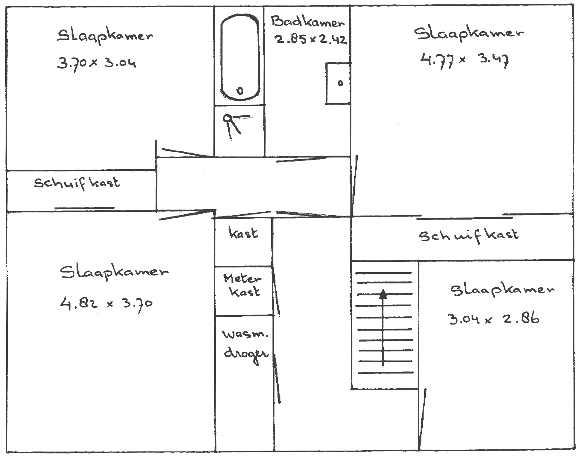 Slaapkamer
3.70 x 3.04
Badkamer
2.85 x 2.42
Slaapkamer
4.77 x 3.47
Schuifkast
kast
Schuifkast
Slaapkamer
4.82 x 3.70
Meter
kast
Wasm.
droger
Slaapkamer
3.04 x 2.86